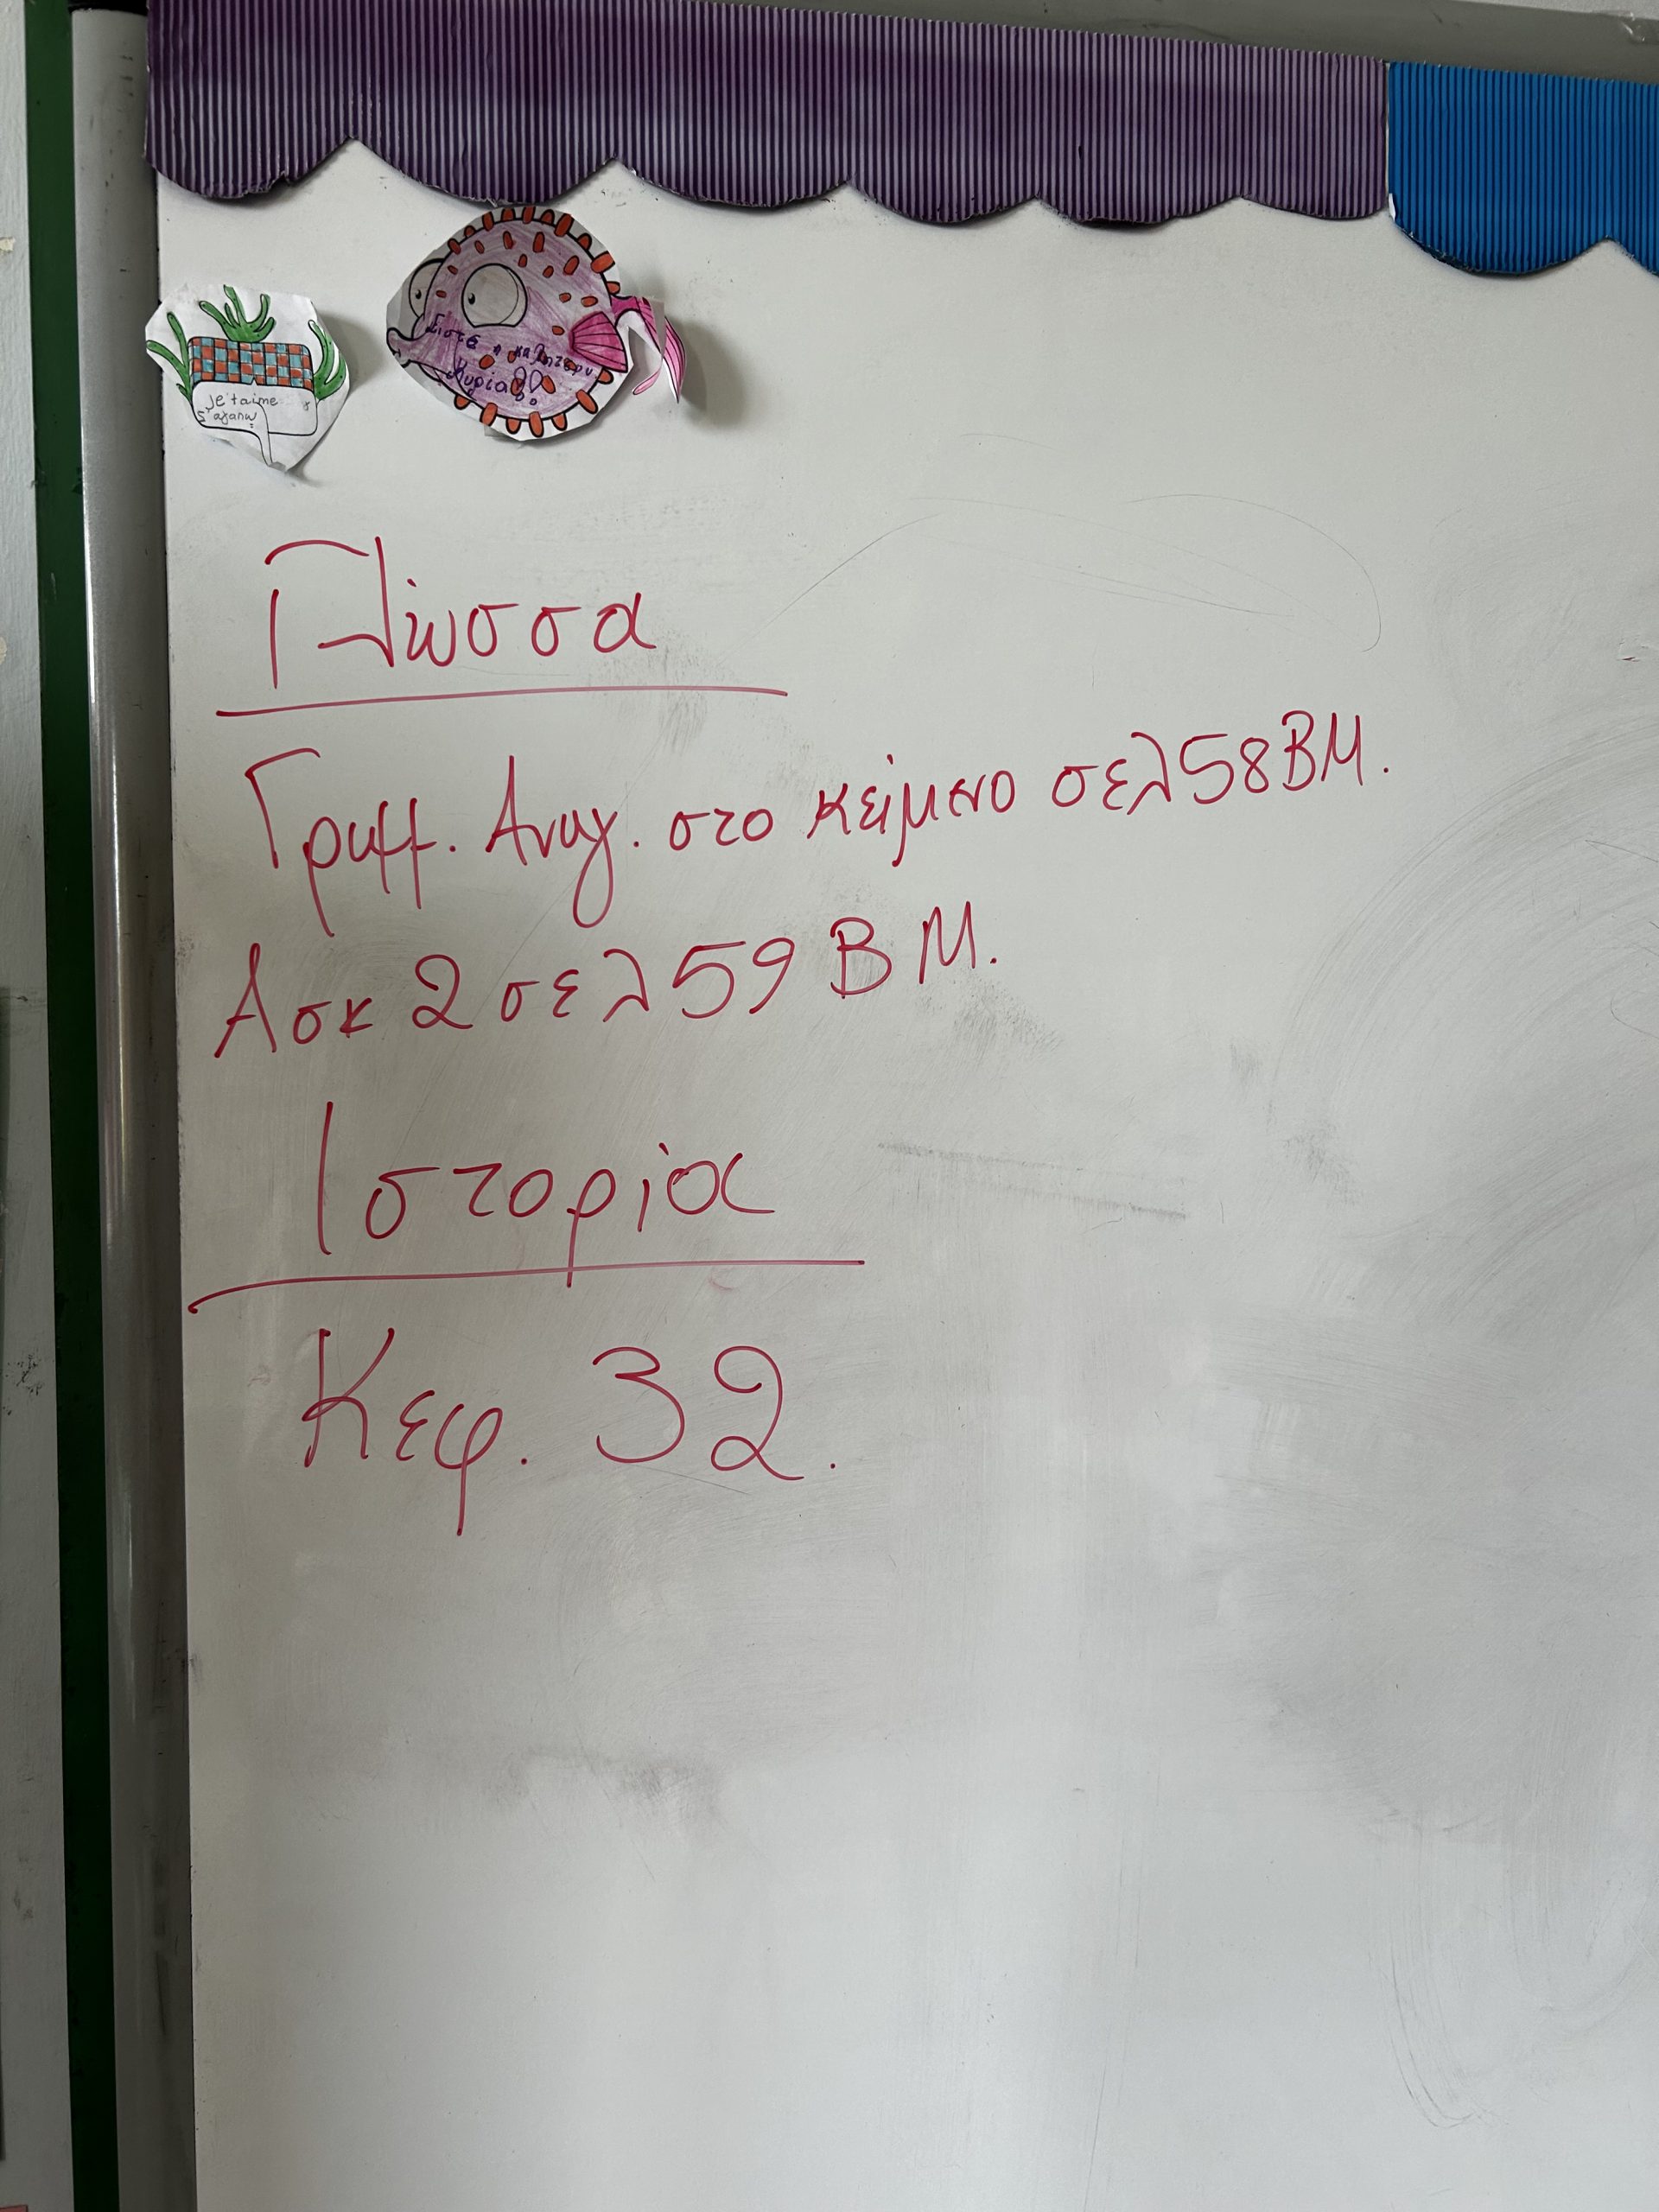 je t'aime
σ'αγαπώ
Είστε η καλύτερη
Κυρία
Γλώσσα
Γραμμ. Αναγ. στο κείμενο σελ 58 ΒΜ.
Ασκ 2 σελ 59 ΒΜ.
Ιστορία
Κεφ. 32.